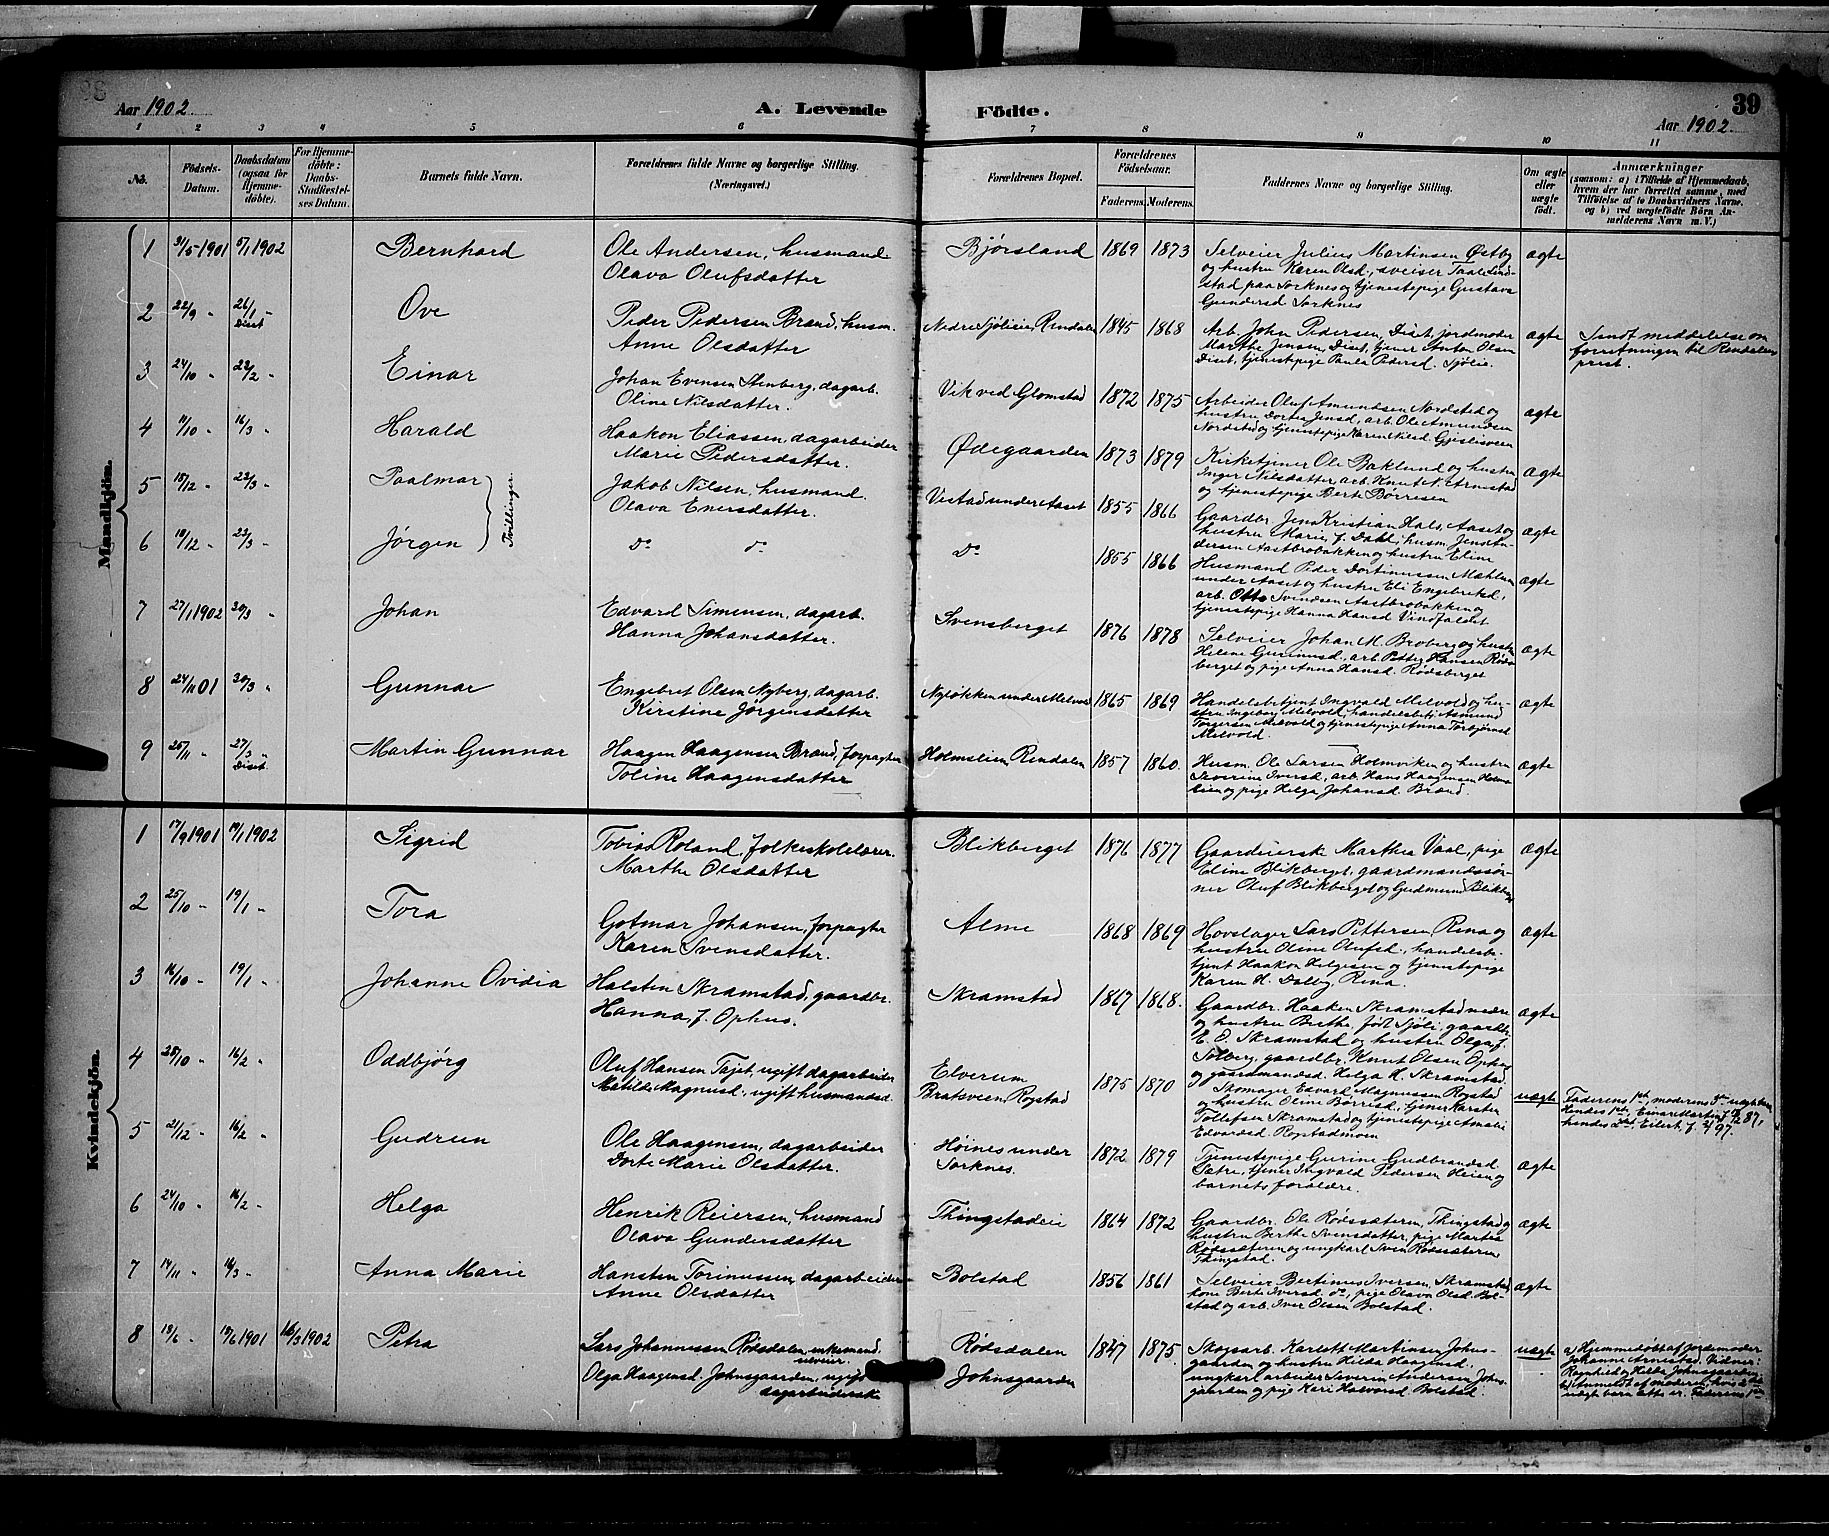 Aar 1902.
A. Levende
Födte.
39
Aar 1902.
1 2 3 4 5 6 7 8 9 10 11
No.
Födsels-
Datum.
Daabsdatum
(ogsaa for
Hjemme-
döbte).
For Hjemme-
döbte:
Daabs-
Stadfæstel-
ses Datum.
Barnets fulde Navn.
Forældrenes fulde Navne og borgerlige Stilling.
(Næringsvei.)
Forældrenes Bopæl.
Forældrenes
Födselsaar.
Faderens. Moderens.
Faddernes Navne og borgerlige Stilling.
Om ægte
eller
uægte
født.
Anmærkninger
(saasom: a) i Tilfælde af Hjemmedaab,
hvem der har forrettet samme, med
Tilföielse af to Daabsvidners Navne.
og b) ved uægtefödte Börn An-
melderens Navn m. V.)
Mandkjön.
1 31/5 1901 6/1 1902 Bernhard
Ole Andersen, husmand
Olava Olufsdatter
Bjørsland 1869 1873
Selveier Julius Martinsen Østby
og hustru Karen Olsd., sveiser Taale Lind-
stad paa Sorknes og tjenestepige Gustava
Gundersd Sorknes
ægte
2 22/9 " 26/1 " Diset Ove
Peder Pedersen Brænd, husm.
Anne Olsdatter
Nedre Sjøliein, Rendalen 1845 1868
Arb. John Pedersen, Diset, jordmoder
Marthe Jensen, Diset, tjener Anton Olsen
Diset, tjenestepige Paula Pedersd. Sjøli.
ægte
Sendt meddelelse om
forretningen til Rendalens
prest.
3 24/10 " 22/2 " Einar
Johan Evensen Stenberg, dagarb.
Oline Nilsdatter.
Vik ved Glomstad 1872 1875
Arbeider Oluf Amundsen Nordsted og
hustru Dortea Jensd, arb. Ole Amundsen
Nordsted og tjenestepige Karen Nilsd. Gjeslisveen
ægte
4 11/10 " 16/3 " Harald
Haakon Eliassen, dagarbeider
Marie Pedersdatter.
Ødegaarden 1873 1879
Kirketjener Ole Baklund og hustru
Inger Nilsdatter, arb. Knut N. Arnestad
og tjenestepige Berte Børresen
ægte
5 18/12 " 23/3 " Paalmar
Tvillinger.
Jakob Nilsen, husmand.
Olava Enersdatter.
Vestad under Aaset 1855 1866
Gaardbr. Jens Kristian Hals, Aaset og
hustru Marie, f. Dahl, husm. Jens An-
dersen Aastbrobakken og hustru Eline
ægte
6 18/12 " 23/3 " Jørgen
Do do
Do 1855 1866
Husmand Peder Dortinussen Mæhlum
under Aaset og hustru Eli Engebretsd,
arb. Otto Svendsen Aastbrobakken og
tjenestepige Hanna Hansd Vindfaldet
ægte
7 27/1 1902 30/3 " Johan
Edvard Simensen, dagarb.
Hanna Johansdatter.
Svensberget 1876 1878
Selveier Johan M. Broberg og hustru
Helene Gurinusd., arb. Petter Hansen Røds-
berget og pige Anna Hansd. Rødsberget
ægte
8 24/11 01 30/3 " Gunnar
Engebret Olsen Nyberg, dagarb.
Kirstine Jørgensdatter
Nyløkken under Melvold 1865 1869
Handelsbetjent Ingvald Melvold og hu-
stru Ingeborg Melvold, handelsbetj. Asmund
Torgersen Melvold og tjenestepige Anna Torbjørnsd
Melvold.
ægte
9 25/11 " 27/3 " Diset. Martin Gunnar
Haagen Haagensen Brænd, forpagter
Toline Haagensdatter
Holmslien, Rendalen 1857 1860.
Husm. Ole Larsen Holmviken og hustru
Severine Iversd, arb. Hans Haagensen Holms-
lien og pige Helga Johansd. Brænd.
ægte
Kvindekjön.
1 17/9 1901 19/1 1902 Sigrid
Tobias Roland, folkeskolelærer.
Marthe Olsdatter
Blikberget 1876 1877
Gaardeierske Marthea Vaal, pige
Eline Blikberget, gaardmandssøn-
ner Oluf Blikberget og Gudmund Blikberg
ægte
2 25/10 " 19/1 " Tora
Gotmar Johansen, forpagter
Karen Svensdatter.
Alme 1868 1869
Hovslager Lars Pettersen Rena og
hustru Oline Olufsd., handelsbe-
tjent Haakon Helgesen og tjenestepige
Karen H. Dalby, Rena.
ægte
3 16/10 " 19/1 " Johanne Ovidia
Halsten Skramstad, gaardbr.
Hanna, f. Ophus.
Skramstad 1867 1868.
Gaardbr. Haaken Skramstad nedre
og hustru Berthe, født Sjøli, gaardbr.
E. O. Skramstad og hustru Olga f.
Solberg, gaardbr. Knut Olsen Ophus
og gaardmandsd. Helga H. Skramstad.
ægte
4 28/10 " 16/2 " Oddbjørg
Oluf Hansen Tajet, ugift dagarbeider
Matilde Magnusd., ugift husmandsd.
Elverum
Bratsveen, Rogstad 1875 1870
Skomager Edvard Magnussen Rogstad
og hustru Oline Børresd., tjener Karsten
Tollefsen Skramstad og tjenestepige Amalie
Edvardsd. Rogstadmoen
uægte
Faderens 1ste, moderens 3die uægte barn
Hendes 1ste, Einar Martin, f. 7/12 87,
hendes 2det, Eilert, f. 2/4 97.
5 21/12 " 16/2 " Gudrun
Ole Haagensen, dagarbeider
Dorte Marie Olsdatter.
Høines under
Sorknes. 1872 1879
Tjenestepige Gurine Gudbrandsd.
Sætre, tjener Ingvald Pedersen Heien og
barnets forældre.
ægte
6 24/10 " 16/2 " Helga
Henrik Reiersen, husmand
Olava Gundersdatter
Thingstadeie 1864 1872
Gaardbr. Ole Rødssæteren, Thingstad og
hustru Berthe Svensdatter, pige Martea
Rødssæteren og ungkarl Sven Rødsæteren
Thingstad.
ægte
7 14/11 " 16/3 " Anna Marie
Hansten Torinussen, dagarbeider
Anne Olsdatter
Bolstad 1856 1861
Selveier Bertinus Iversen, Skramstad
kone Berte Iversd do, pige Olava Olsd. Bol-
stad og arb. Iver Olsen Bolstad.
ægte
8 18/6 " 19/6 1901 16/3 1902 Petra
Lars Johannessen Rødsdalen, enkemand.
selveier.
Olga Haagensd. Johnsgaarden, ugift
dagarbeiderske
Rødsdalen
Johnsgaarden 1847 1875.
Skogsarb. Karlett Martinsen Johns-
gaarden og hustru Hilda Haagensd.
ungkarl arbeider Severin Andersen Johns-
gaarden og pige Kari Halvorsd. Bolstad.
uægte
a) Hjemmedøbt af jordemoder
Johanne Arnestad. Vidner:
Ragnhild og Hilda Johnsgaarden
b) Anmeldt af moderen, hvis 2det
uægte barn dette er. Faderens 1ste